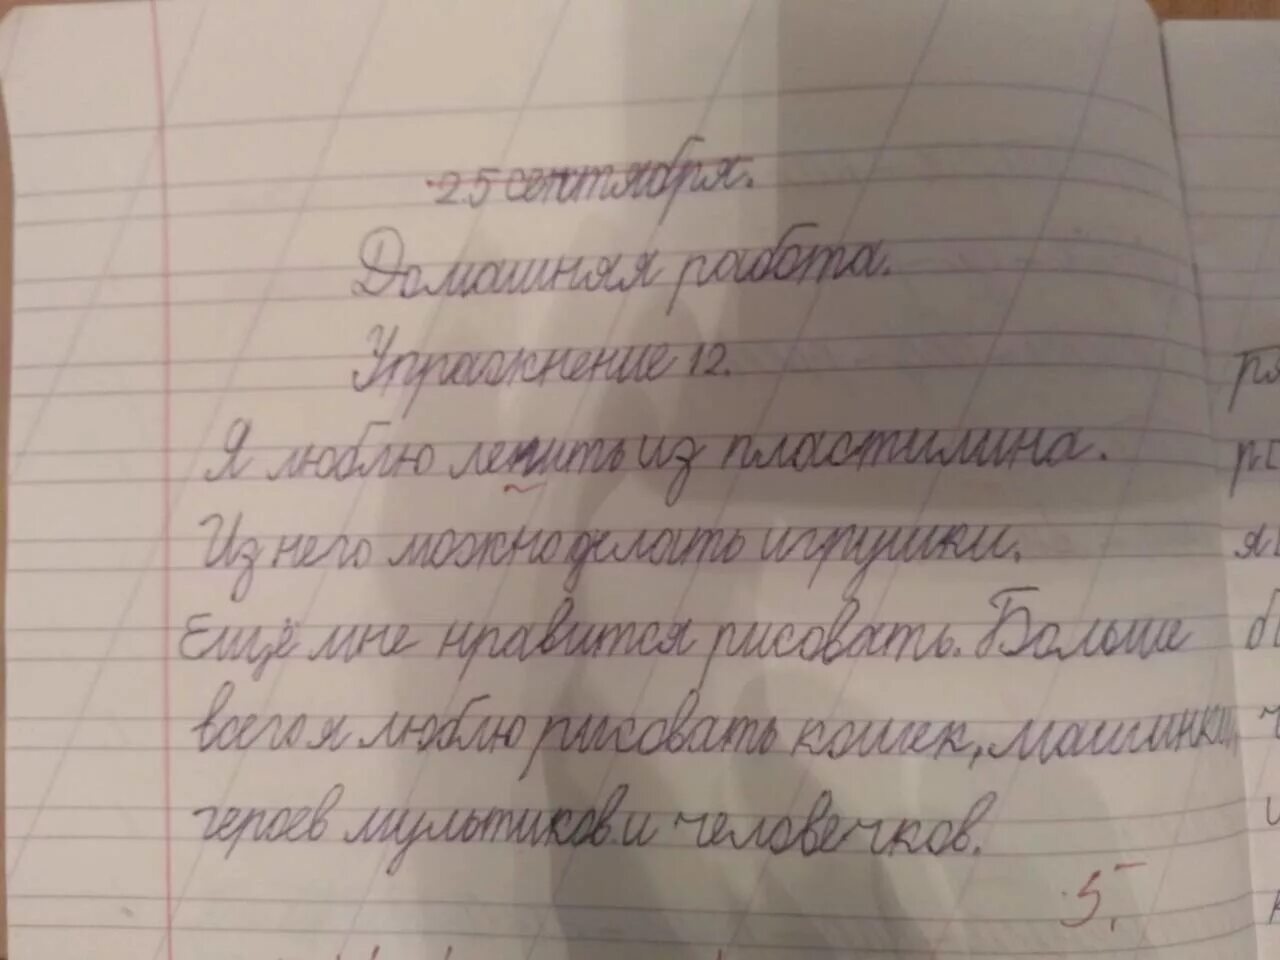 25 сентября.
Домашняя работа.
Упражнение 12.
Я люблю лепить из пластилина.
Из него можно делать игрушки.
Ещё мне нравится рисовать. Больше
всего я люблю рисовать кошек, машинки,
героев мультиков и человечков.
5-